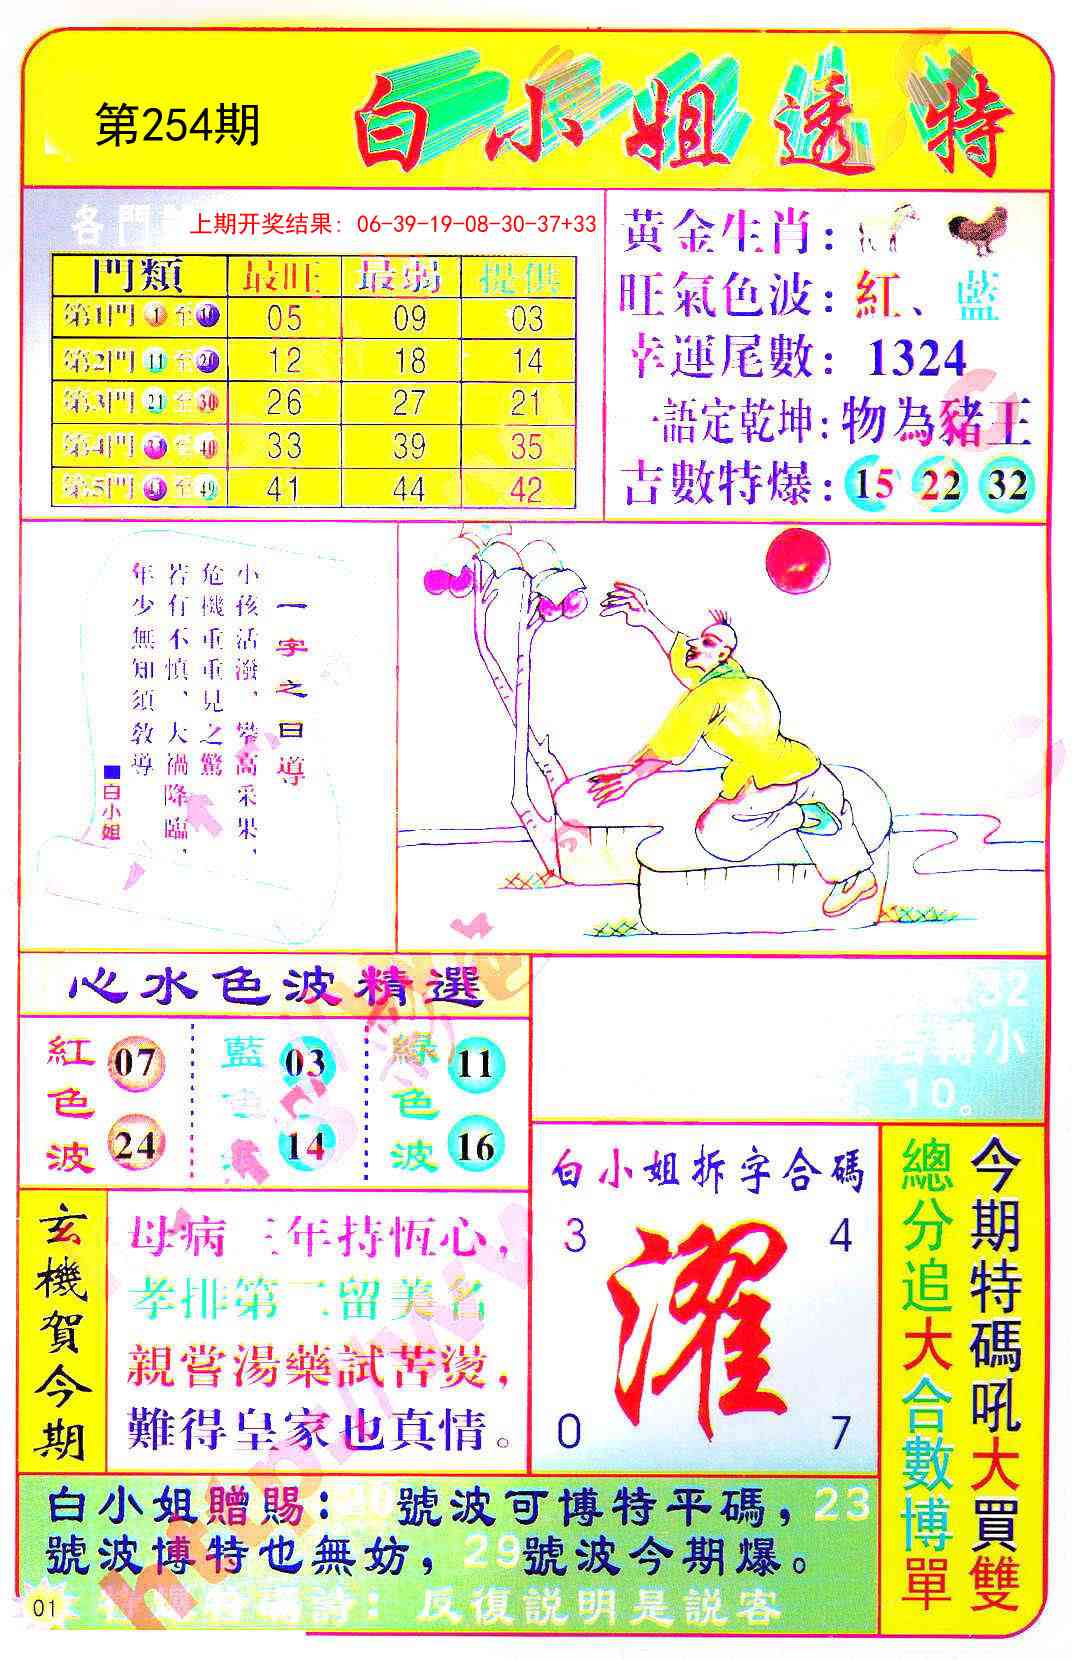 第254期
白小姐透特
各門
上期开奖结果：06-39-19-08-30-37+33
門類 最旺 最弱 提供
第1門 1 至 10 05 09 03
第2門 11 至 20 12 18 14
第3門 21 至 30 26 27 21
第4門 31 至 40 33 39 35
第5門 41 至 49 41 44 42
黃金生肖：
旺氣色波：紅、藍
幸運尾數：1324
一語定乾坤：物為豬王
古數特爆：15 22 32
一字之曰導
小孩活潑、攀高采果、
危機重重見之驚
若有不慎、大禍降臨、
年少無知須教導
■白小姐
心水色波精選
紅色波 07 24
藍色波 03 14
綠色波 11 16
32
轉小
10。
玄機賀今期
母病三年持恆心，
孝排第二留美名
親嘗湯藥試苦燙，
難得皇家也真情。
白小姐拆字合碼
3 4
濯
0 7
今期特碼吼大買雙
總分追大合數博單
白小姐贈賜：20號波可博特平碼，23
號波博特也無妨，29號波今期爆。
詩：反復説明是説客
01